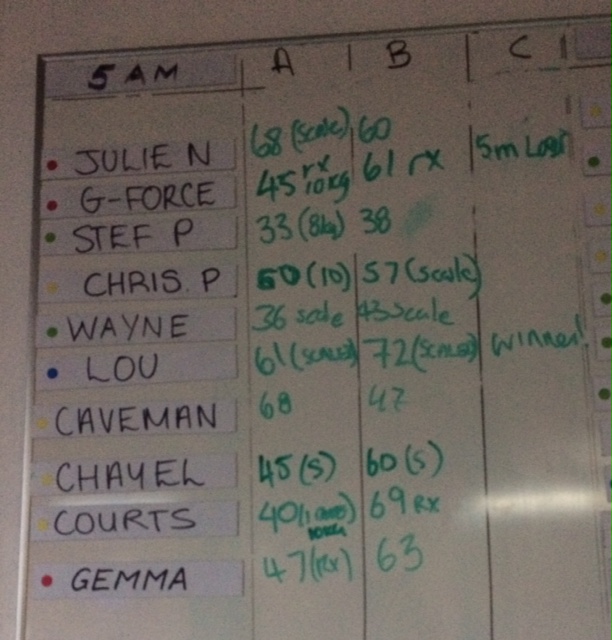 5 AM A B C
JULIE N 68 (scale) 60
G-FORCE 45 rx 10kg 61 rx 5m Lost
STEF P 33 (8kg) 38
CHRIS. P 50 (10) 57 (scale)
WAYNE 36 scale 43 scale
LOU 61 (SCALED) 72 (SCALED) Winner!
CAVEMAN 68 47
CHAYEL 45 (S) 60 (S)
COURTS 40 69 Rx
GEMMA 47 (Rx) 63